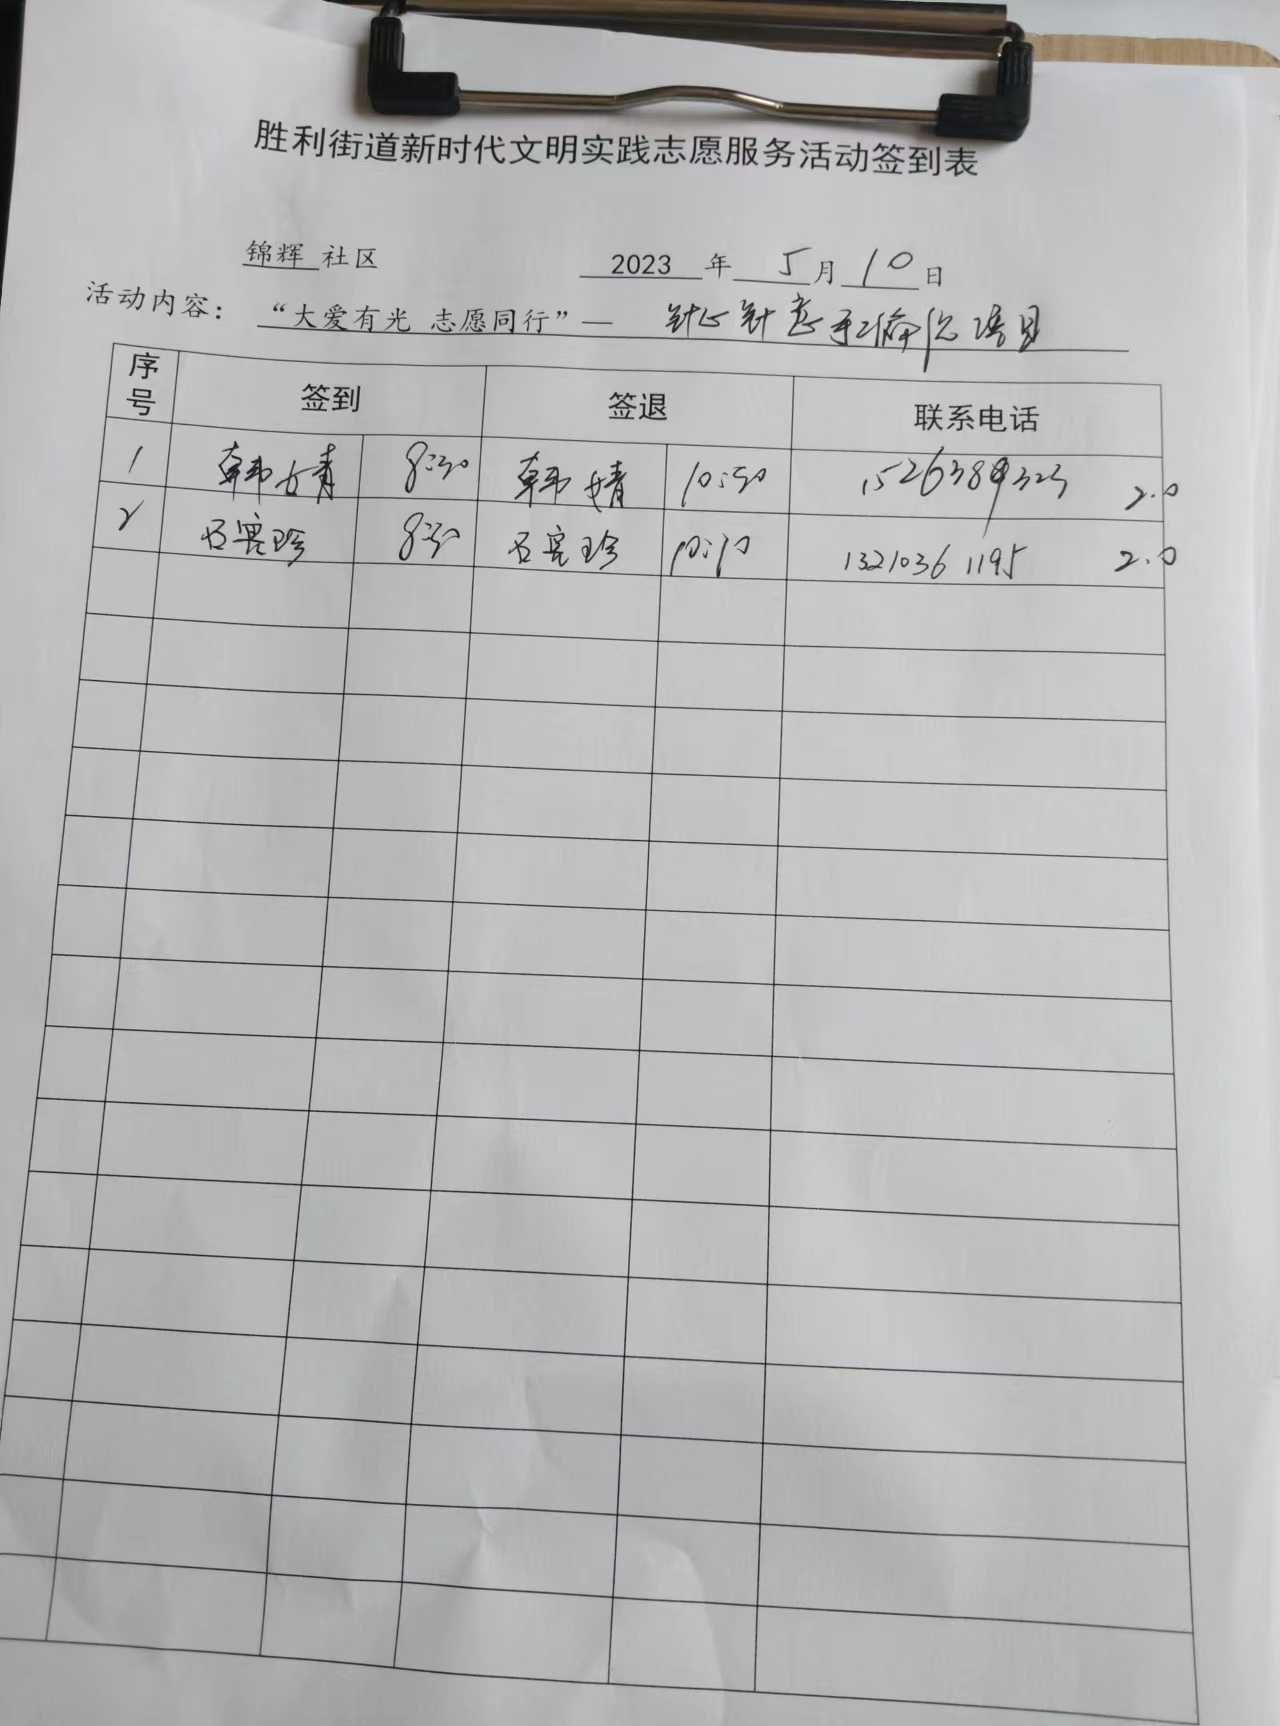 胜利街道新时代文明实践志愿服务活动签到表
锦辉 社区 2023 年 5 月 10 日
活动内容： “大爱有光 志愿同行”— 针心针意
序号 签到 签退 联系电话
1 韩婧 8:30 韩婧 10:30 2.0
2 8:30 10:30 13210361195 2.0